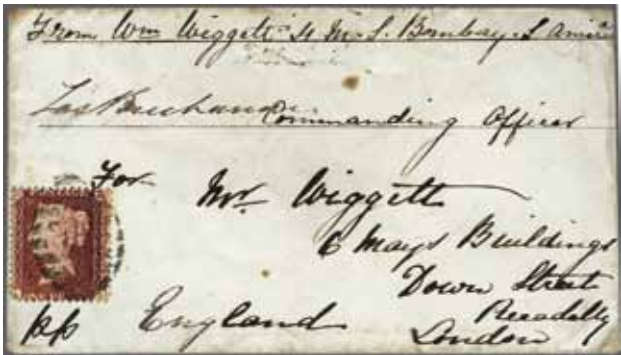 From Wm Wiggett H.M.S. Bombay. S Ameri
Commanding Officer
For Mr. Wiggett
6 Mays Buildings
Down Street
Piccadilly
London
England